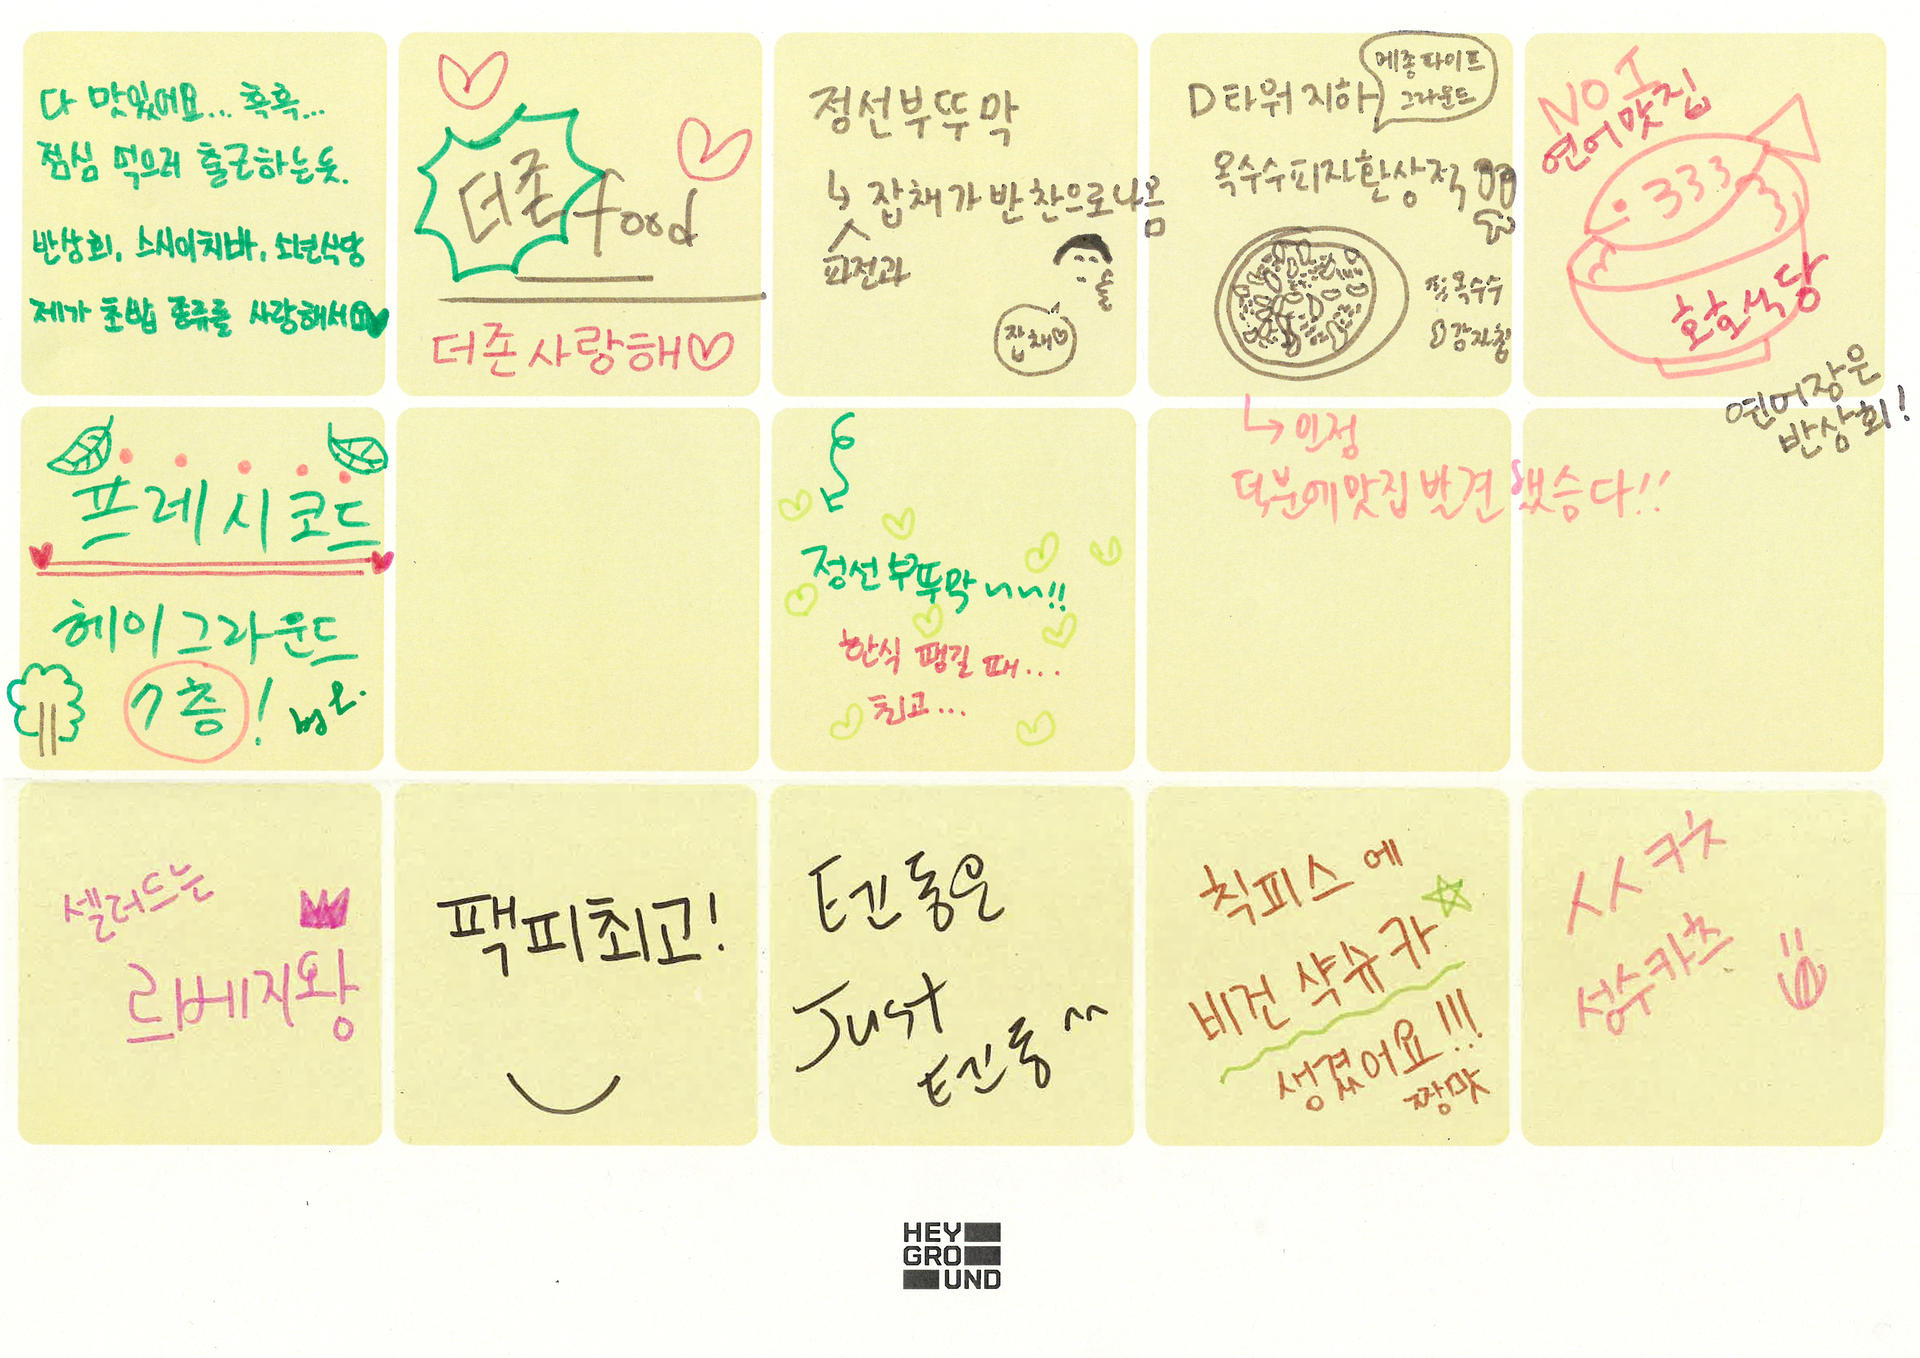 다 맛있어요... 흑흑...
점심 먹으러 출근하는듯.
반상회, 스시이치바, 소년식당
제가 초밥 종류를 사랑해서
더존 food
더존사랑해♡
정선부뚜막
↳ 잡채가 반찬으로나옴
파전과
잡채♡
D타워 지하
메종파이프
그라운드
옥수수피자환상적
옥수수
감자칩
NO 1
연어맛집
333
호호식당
연어장은
반상회!
프레시코드
헤이그라운드
7층!
정선부뚜막 ~~!!
한식 땡길 때...
최고...
↳ 인정
덕분에맛집 발견했슴다!!
셀러드는
르베지왕
팩피최고!
텐동은
Just
텐동^^
칙피스에
비건 샥슈카
생겼어요!!!
짱맛
ㅅㅅㅋㅊ
성수카츠
HEY
GRO
UND